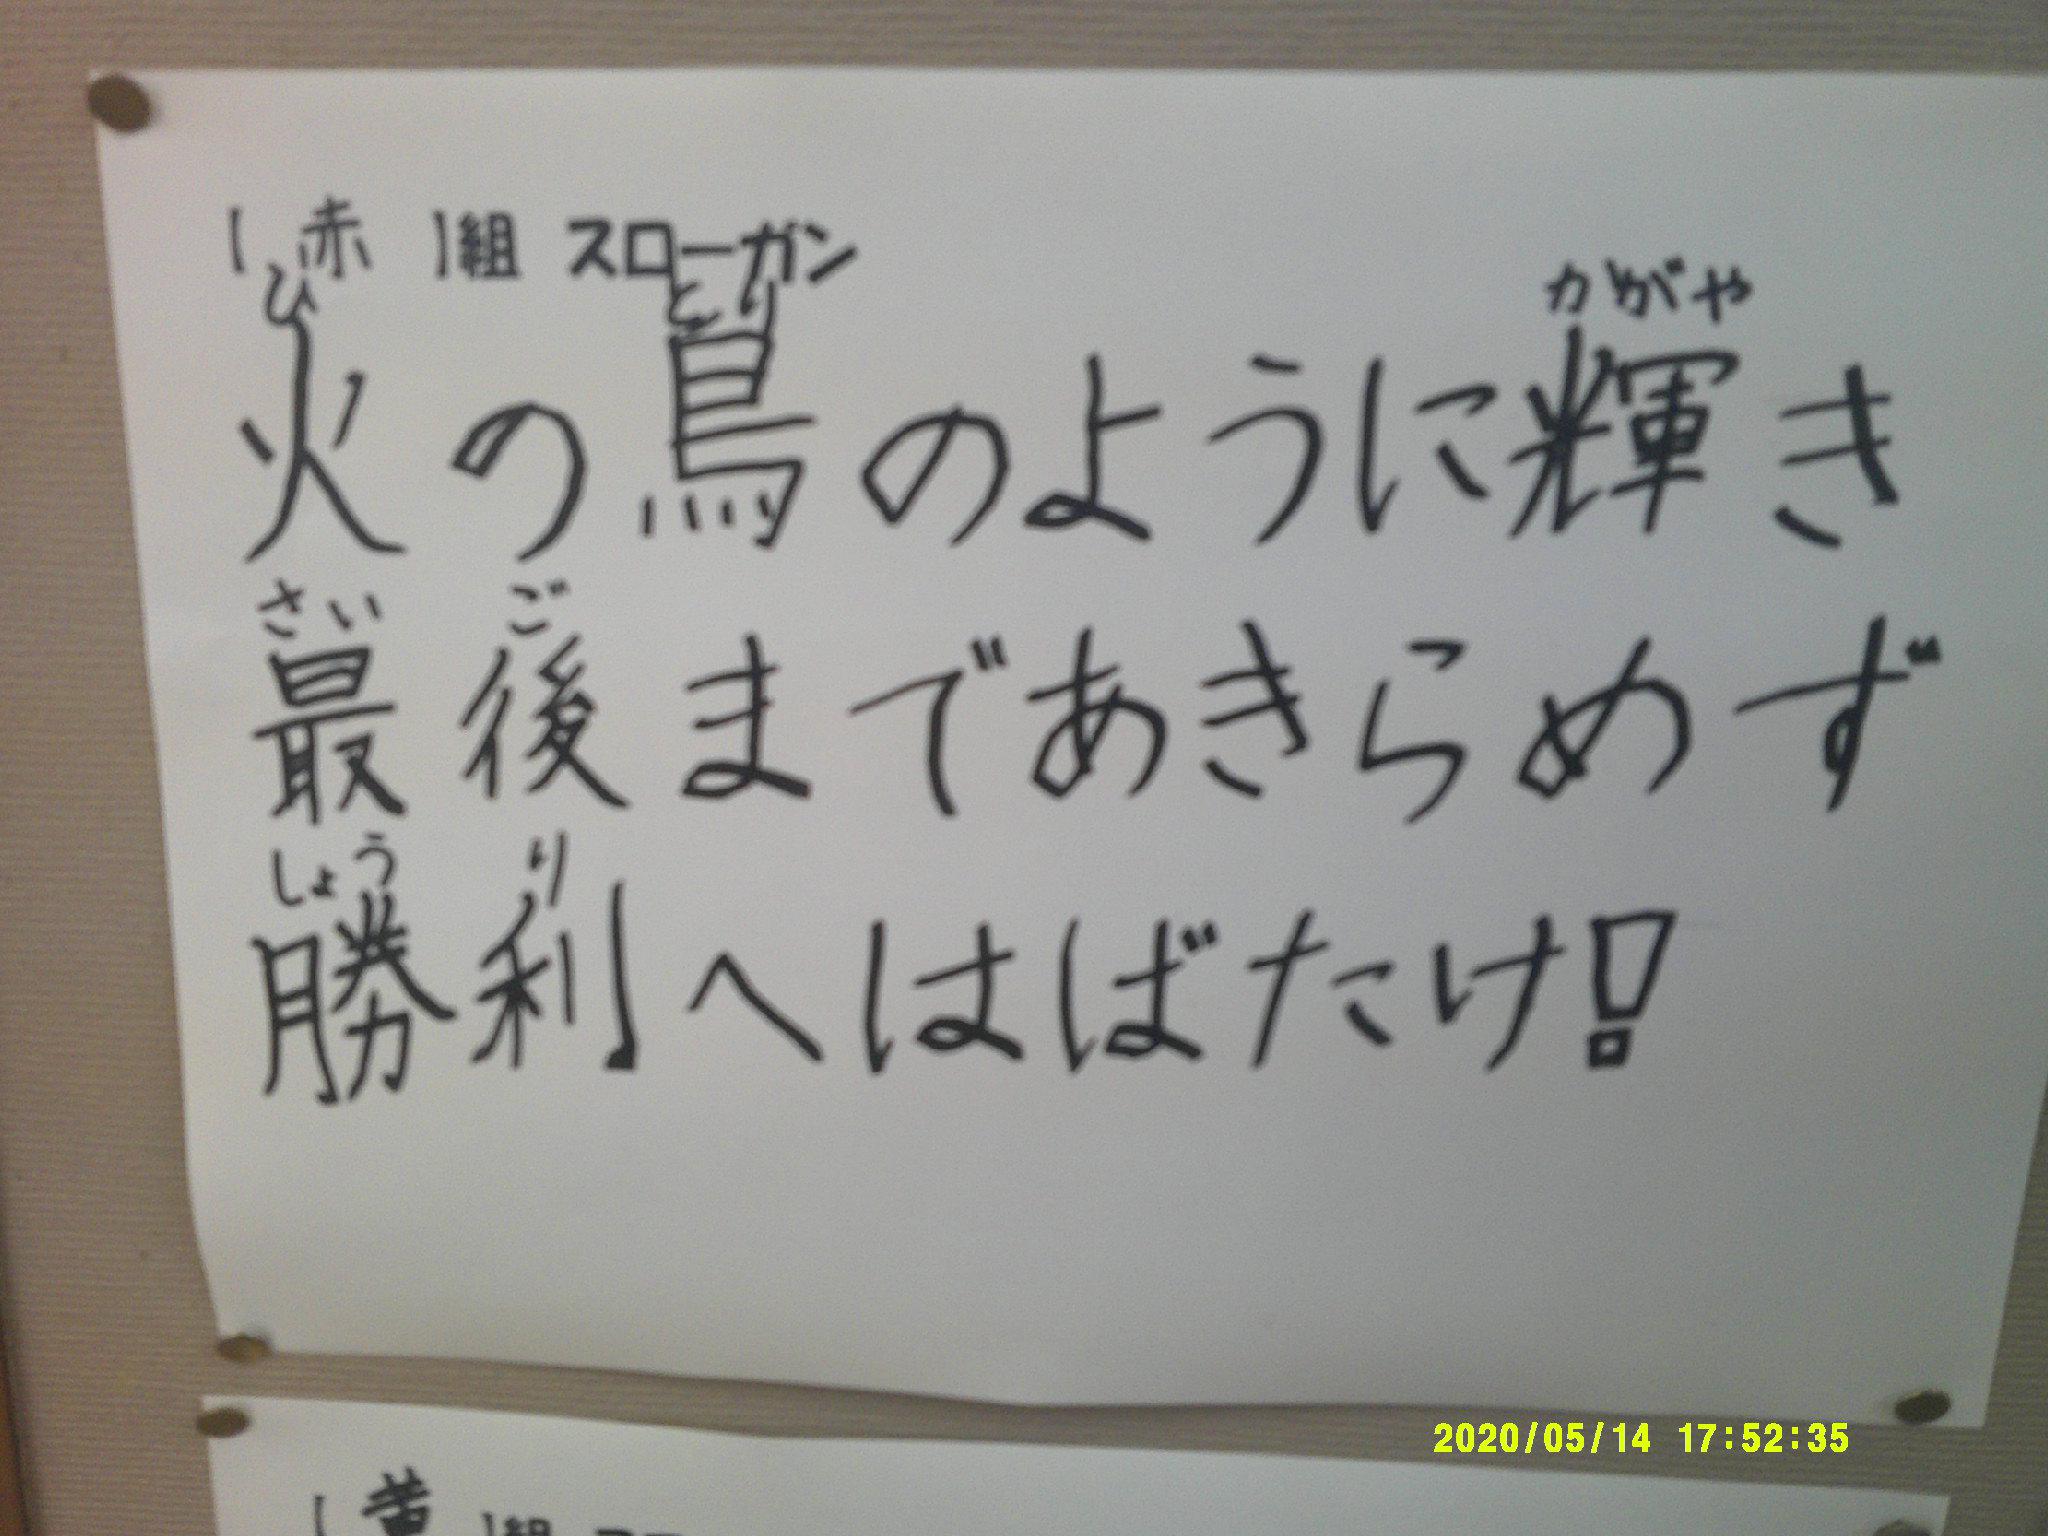 ( 赤 )組 スローガン
ひ とり かがや
火の鳥のように輝き
さい ご
最後まであきらめず
しょう り
勝利へはばたけ!
2020/05/14 17:52:35
( 黄 )組